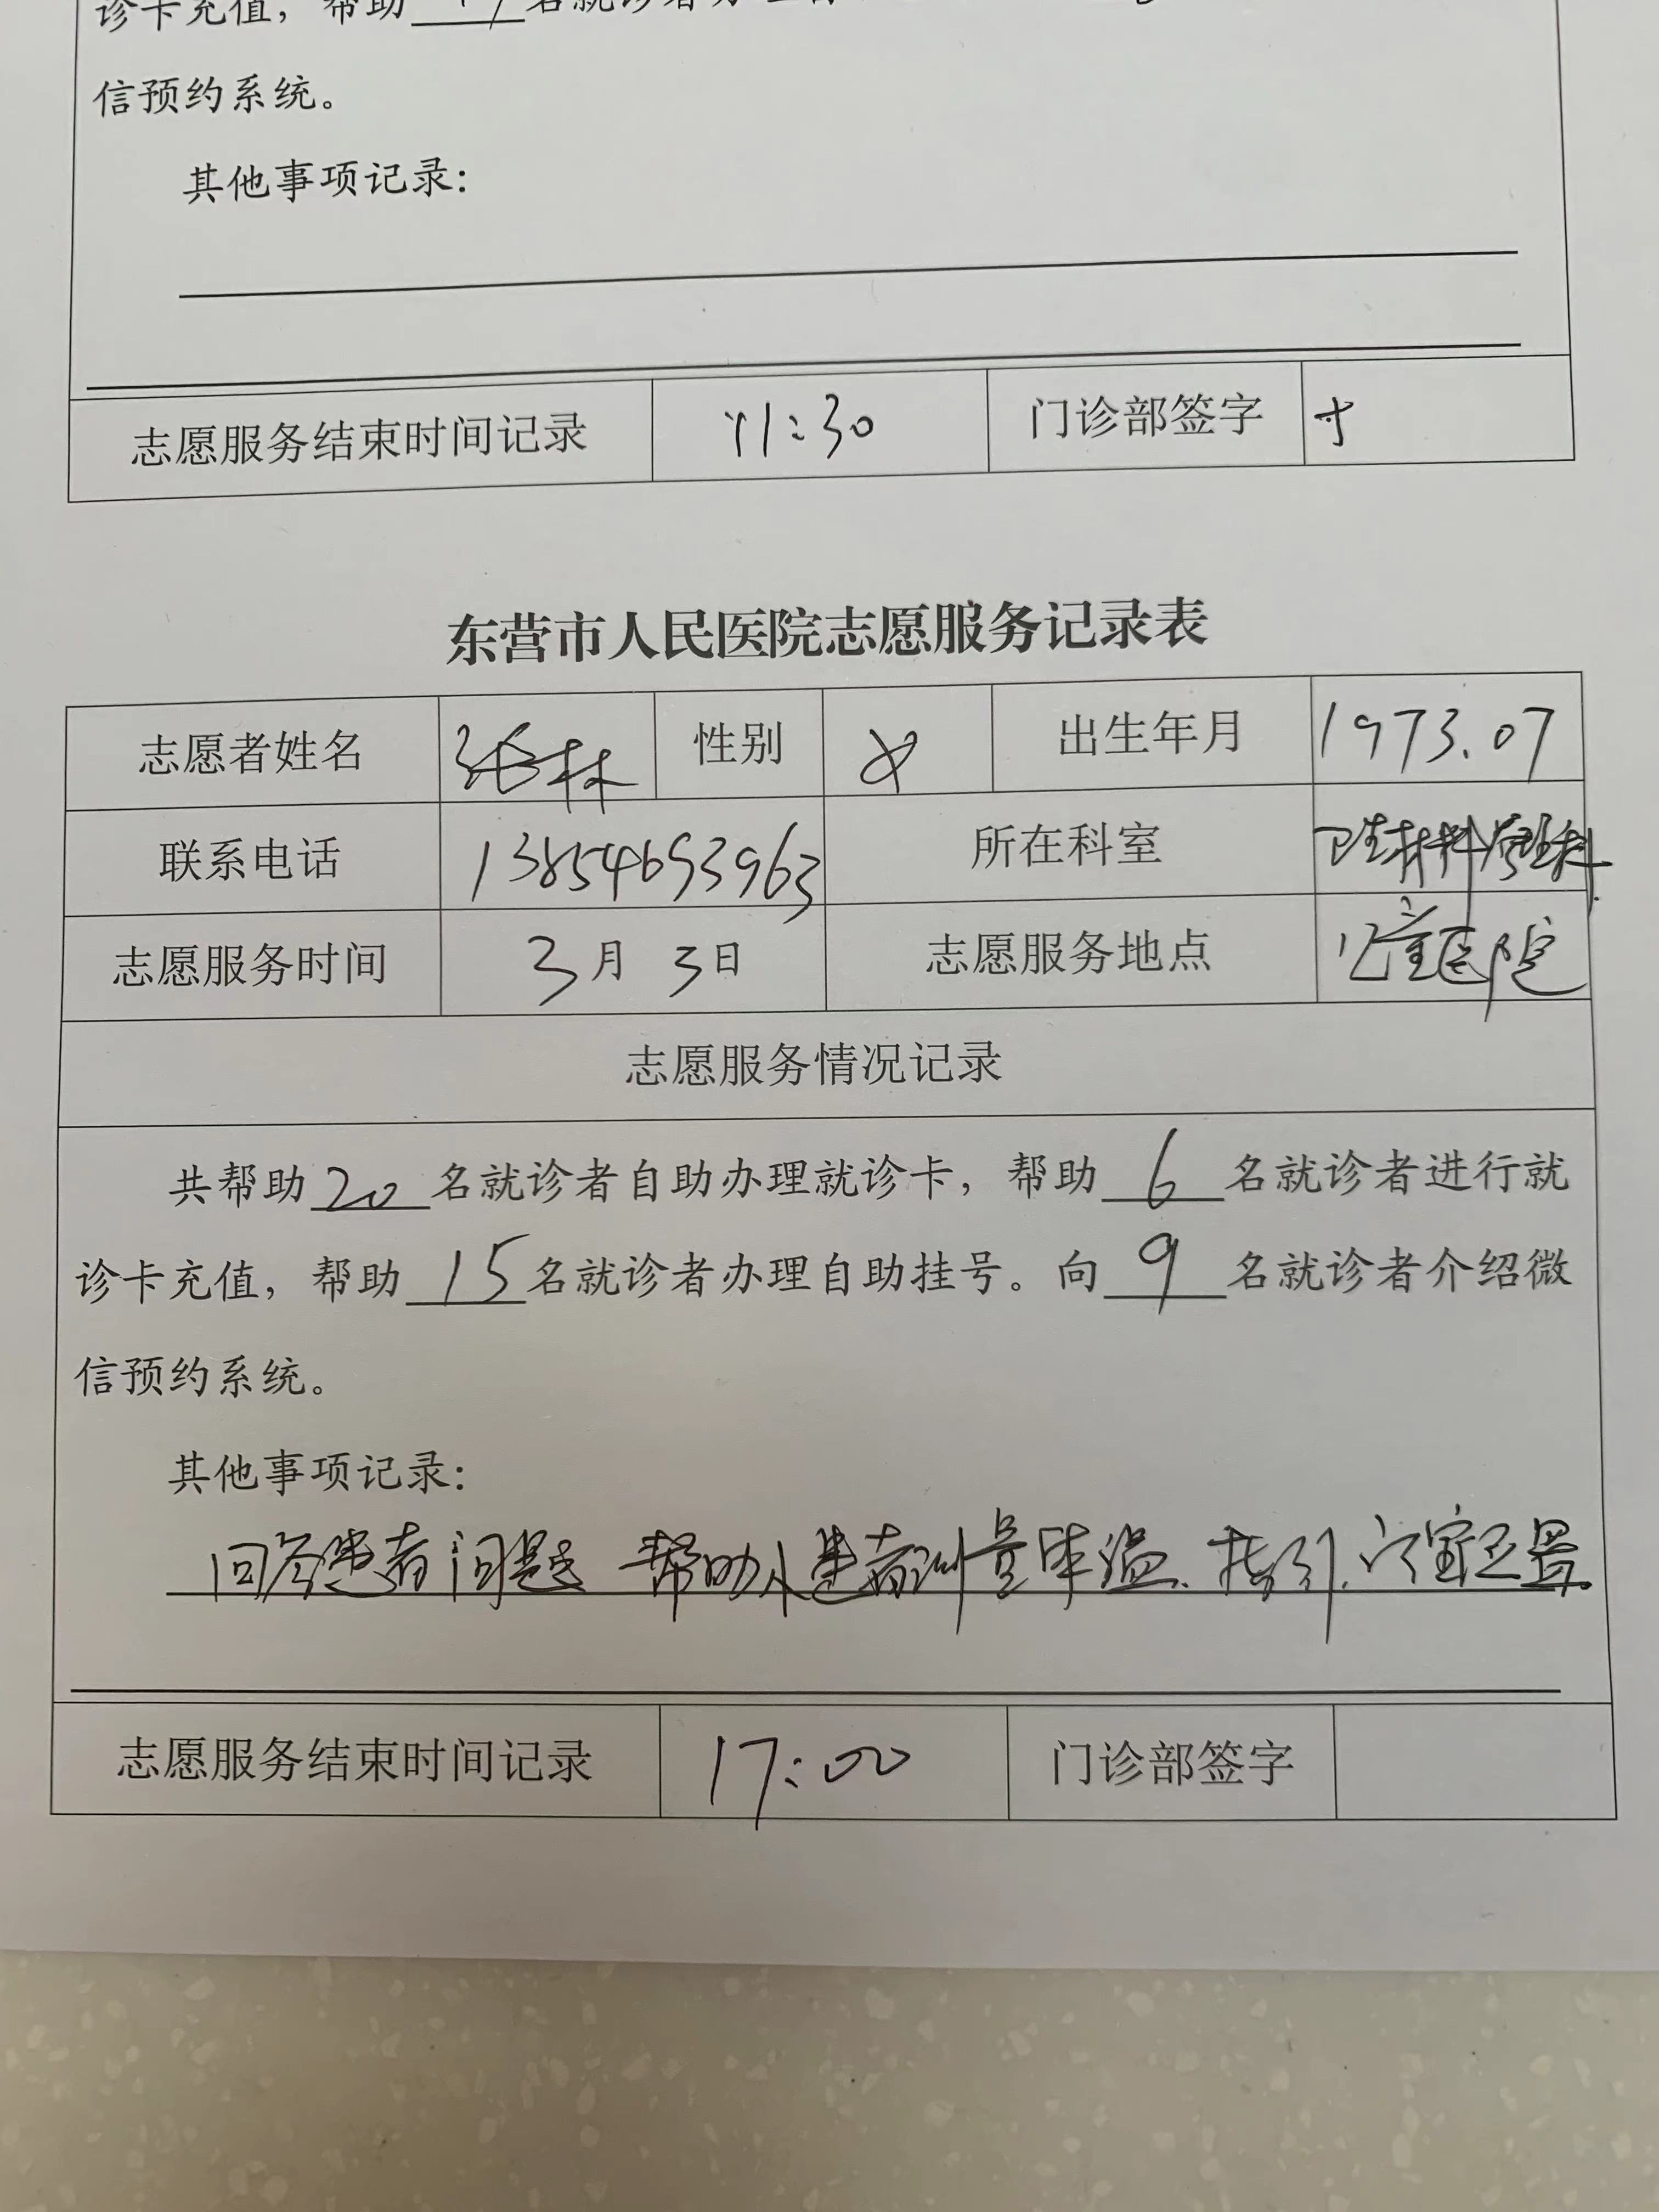 诊卡充值，帮助 名就诊者办理自
信预约系统。
其他事项记录：
志愿服务结束时间记录 11:30 门诊部签字
东营市人民医院志愿服务记录表
志愿者姓名 张林 性别 女 出生年月 1973.07
联系电话 13854693963 所在科室 卫生材料管理科
志愿服务时间 3月3日 志愿服务地点 儿童医院
志愿服务情况记录
共帮助20名就诊者自助办理就诊卡，帮助6名就诊者进行就
诊卡充值，帮助15名就诊者办理自助挂号。向9名就诊者介绍微
信预约系统。
其他事项记录：
回答患者问题 帮助小患者测量体温、指引诊室位置
志愿服务结束时间记录 17:00 门诊部签字